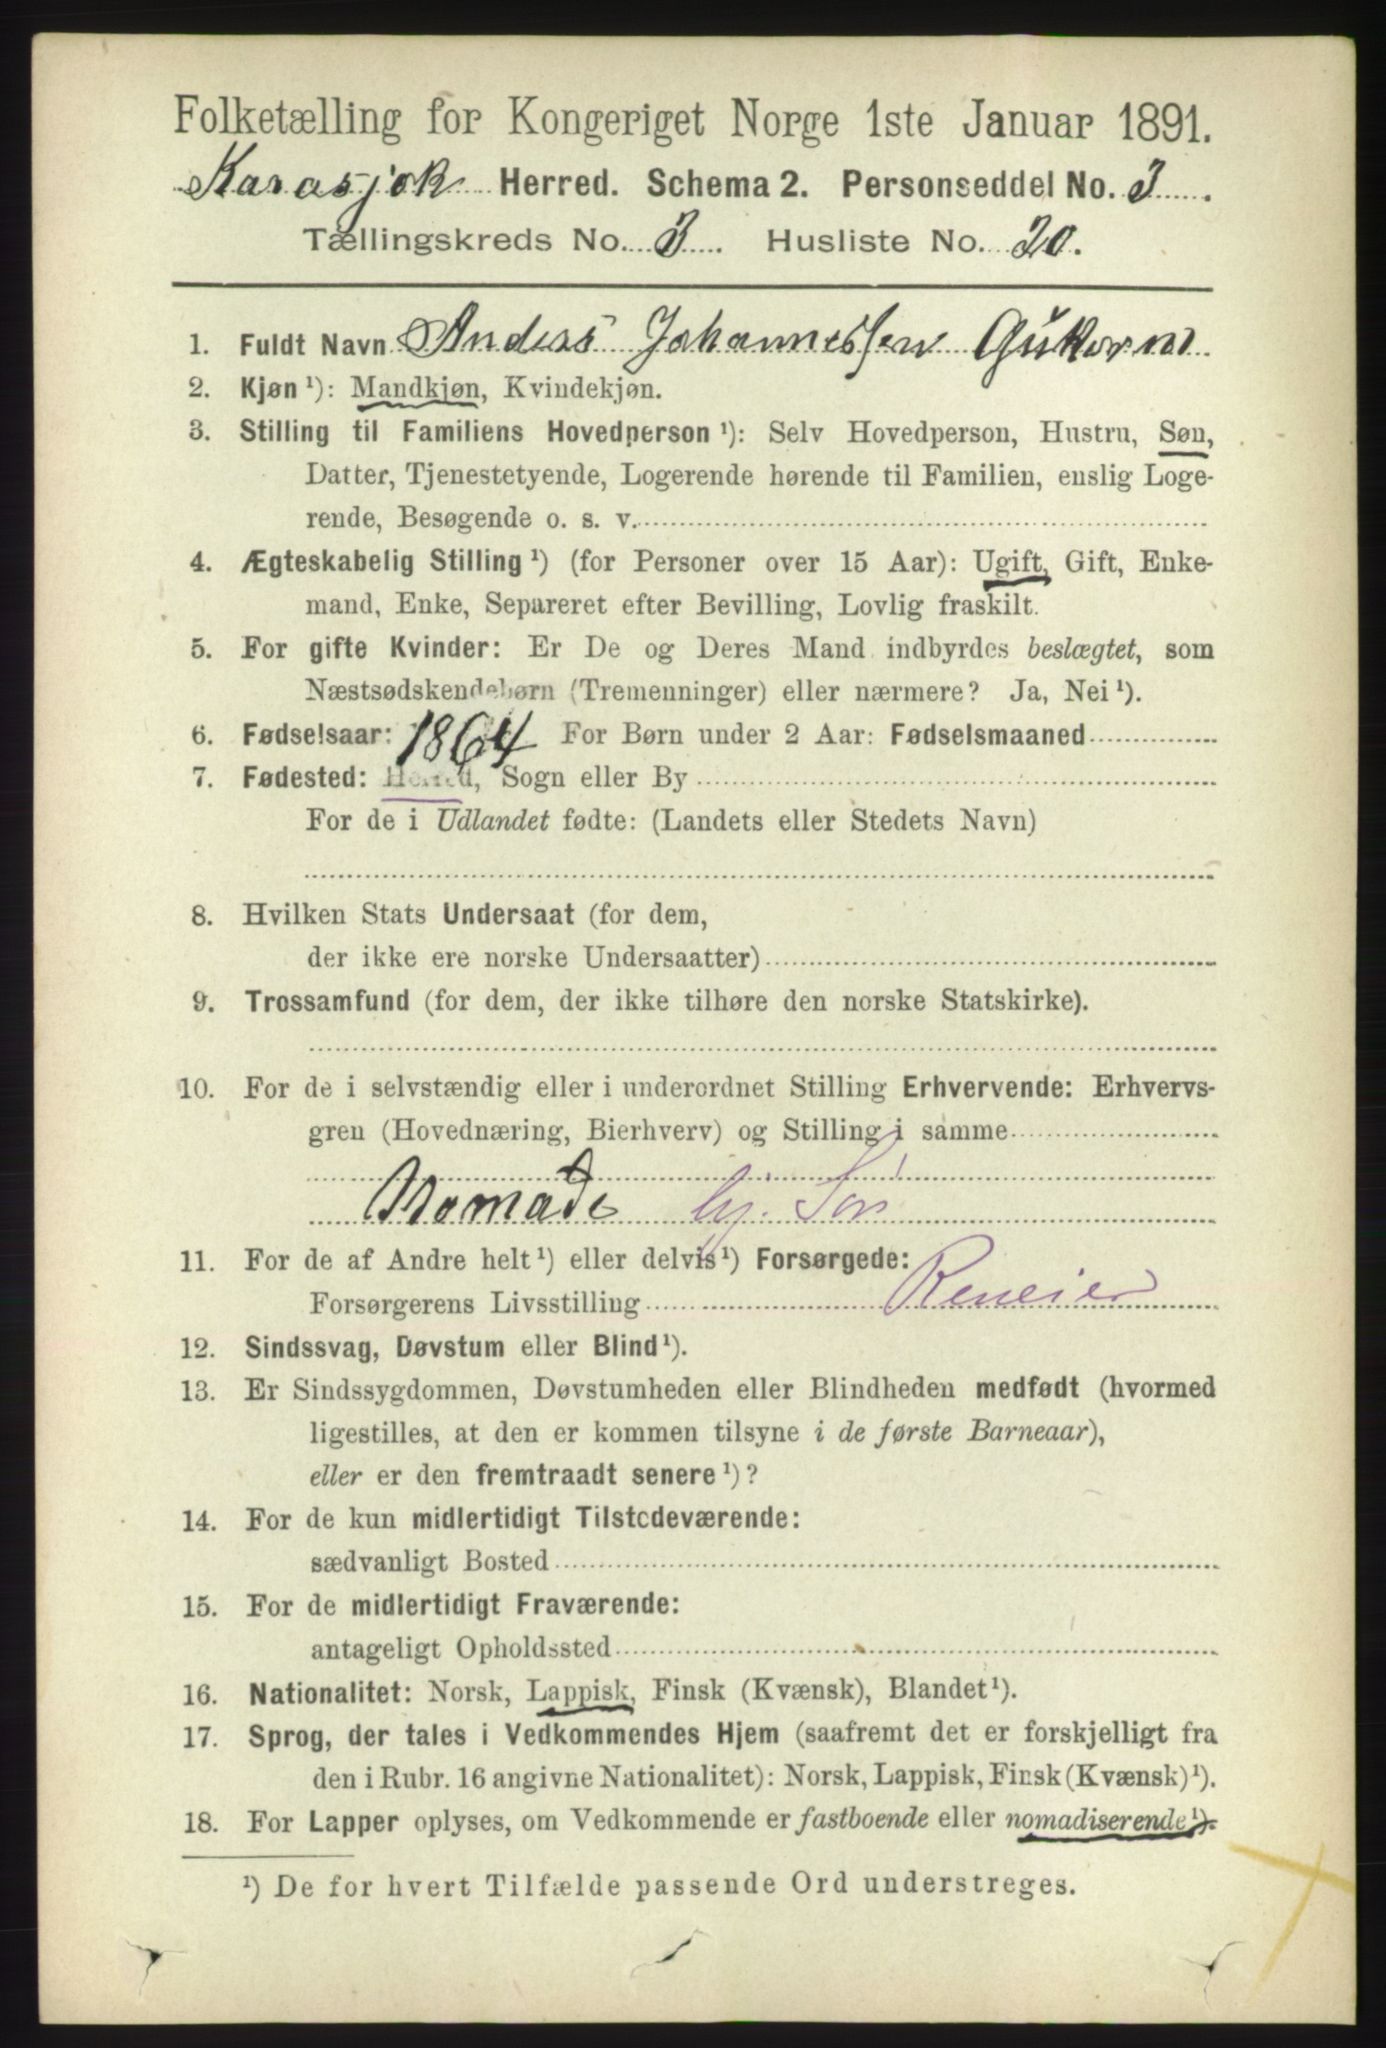 Folketælling for Kongeriget Norge 1ste Januar 1891.
Karasjok Herred. Schema 2. Personseddel No. 3.
Tællingskreds No. 3. Husliste No. 20.
1. Fuldt Navn Anders Johannessen Gukorm
2. Kjøn ¹): Mandkjøn, Kvindekjøn.
3. Stilling til Familiens Hovedperson ¹): Selv Hovedperson, Hustru, Søn,
Datter, Tjenestetyende, Logerende hørende til Familien, enslig Loge-
rende, Besøgende o. s. v.
4. Ægteskabelig Stilling ¹) (for Personer over 15 Aar): Ugift, Gift, Enke-
mand, Enke, Separeret efter Bevilling, Lovlig fraskilt.
5. For gifte Kvinder: Er De og Deres Mand indbyrdes beslægtet, som
Næstsødskendebørn (Tremenninger) eller nærmere? Ja, Nei ¹).
6. Fødselsaar: 1864 For Børn under 2 Aar: Fødselsmaaned
7. Fødested: Herred, Sogn eller By
For de i Udlandet fødte: (Landets eller Stedets Navn)
8. Hvilken Stats Undersaat (for dem,
der ikke ere norske Undersaatter)
9. Trossamfund (for dem, der ikke tilhøre den norske Statskirke).
10. For de i selvstændig eller i underordnet Stilling Erhvervende: Erhvervs-
gren (Hovednæring, Bierhverv) og Stilling i samme
Nomade hj. Søn
11. For de af Andre helt ¹) eller delvis ¹) Forsørgede:
Forsørgerens Livsstilling Reneier
12. Sindssvag, Døvstum eller Blind ¹).
13. Er Sindssygdommen, Døvstumheden eller Blindheden medfødt (hvormed
ligestilles, at den er kommen tilsyne i de første Barneaar),
eller er den fremtraadt senere ¹)?
14. For de kun midlertidigt Tilstedeværende:
sædvanligt Bosted
15. For de midlertidigt Fraværende:
antageligt Opholdssted
16. Nationalitet: Norsk, Lappisk, Finsk (Kvænsk), Blandet ¹).
17. Sprog, der tales i Vedkommendes Hjem (saafremt det er forskjelligt fra
den i Rubr. 16 angivne Nationalitet): Norsk, Lappisk, Finsk (Kvænsk) ¹).
18. For Lapper oplyses, om Vedkommende er fastboende eller nomadiserende ¹).
¹) De for hvert Tilfælde passende Ord understreges.